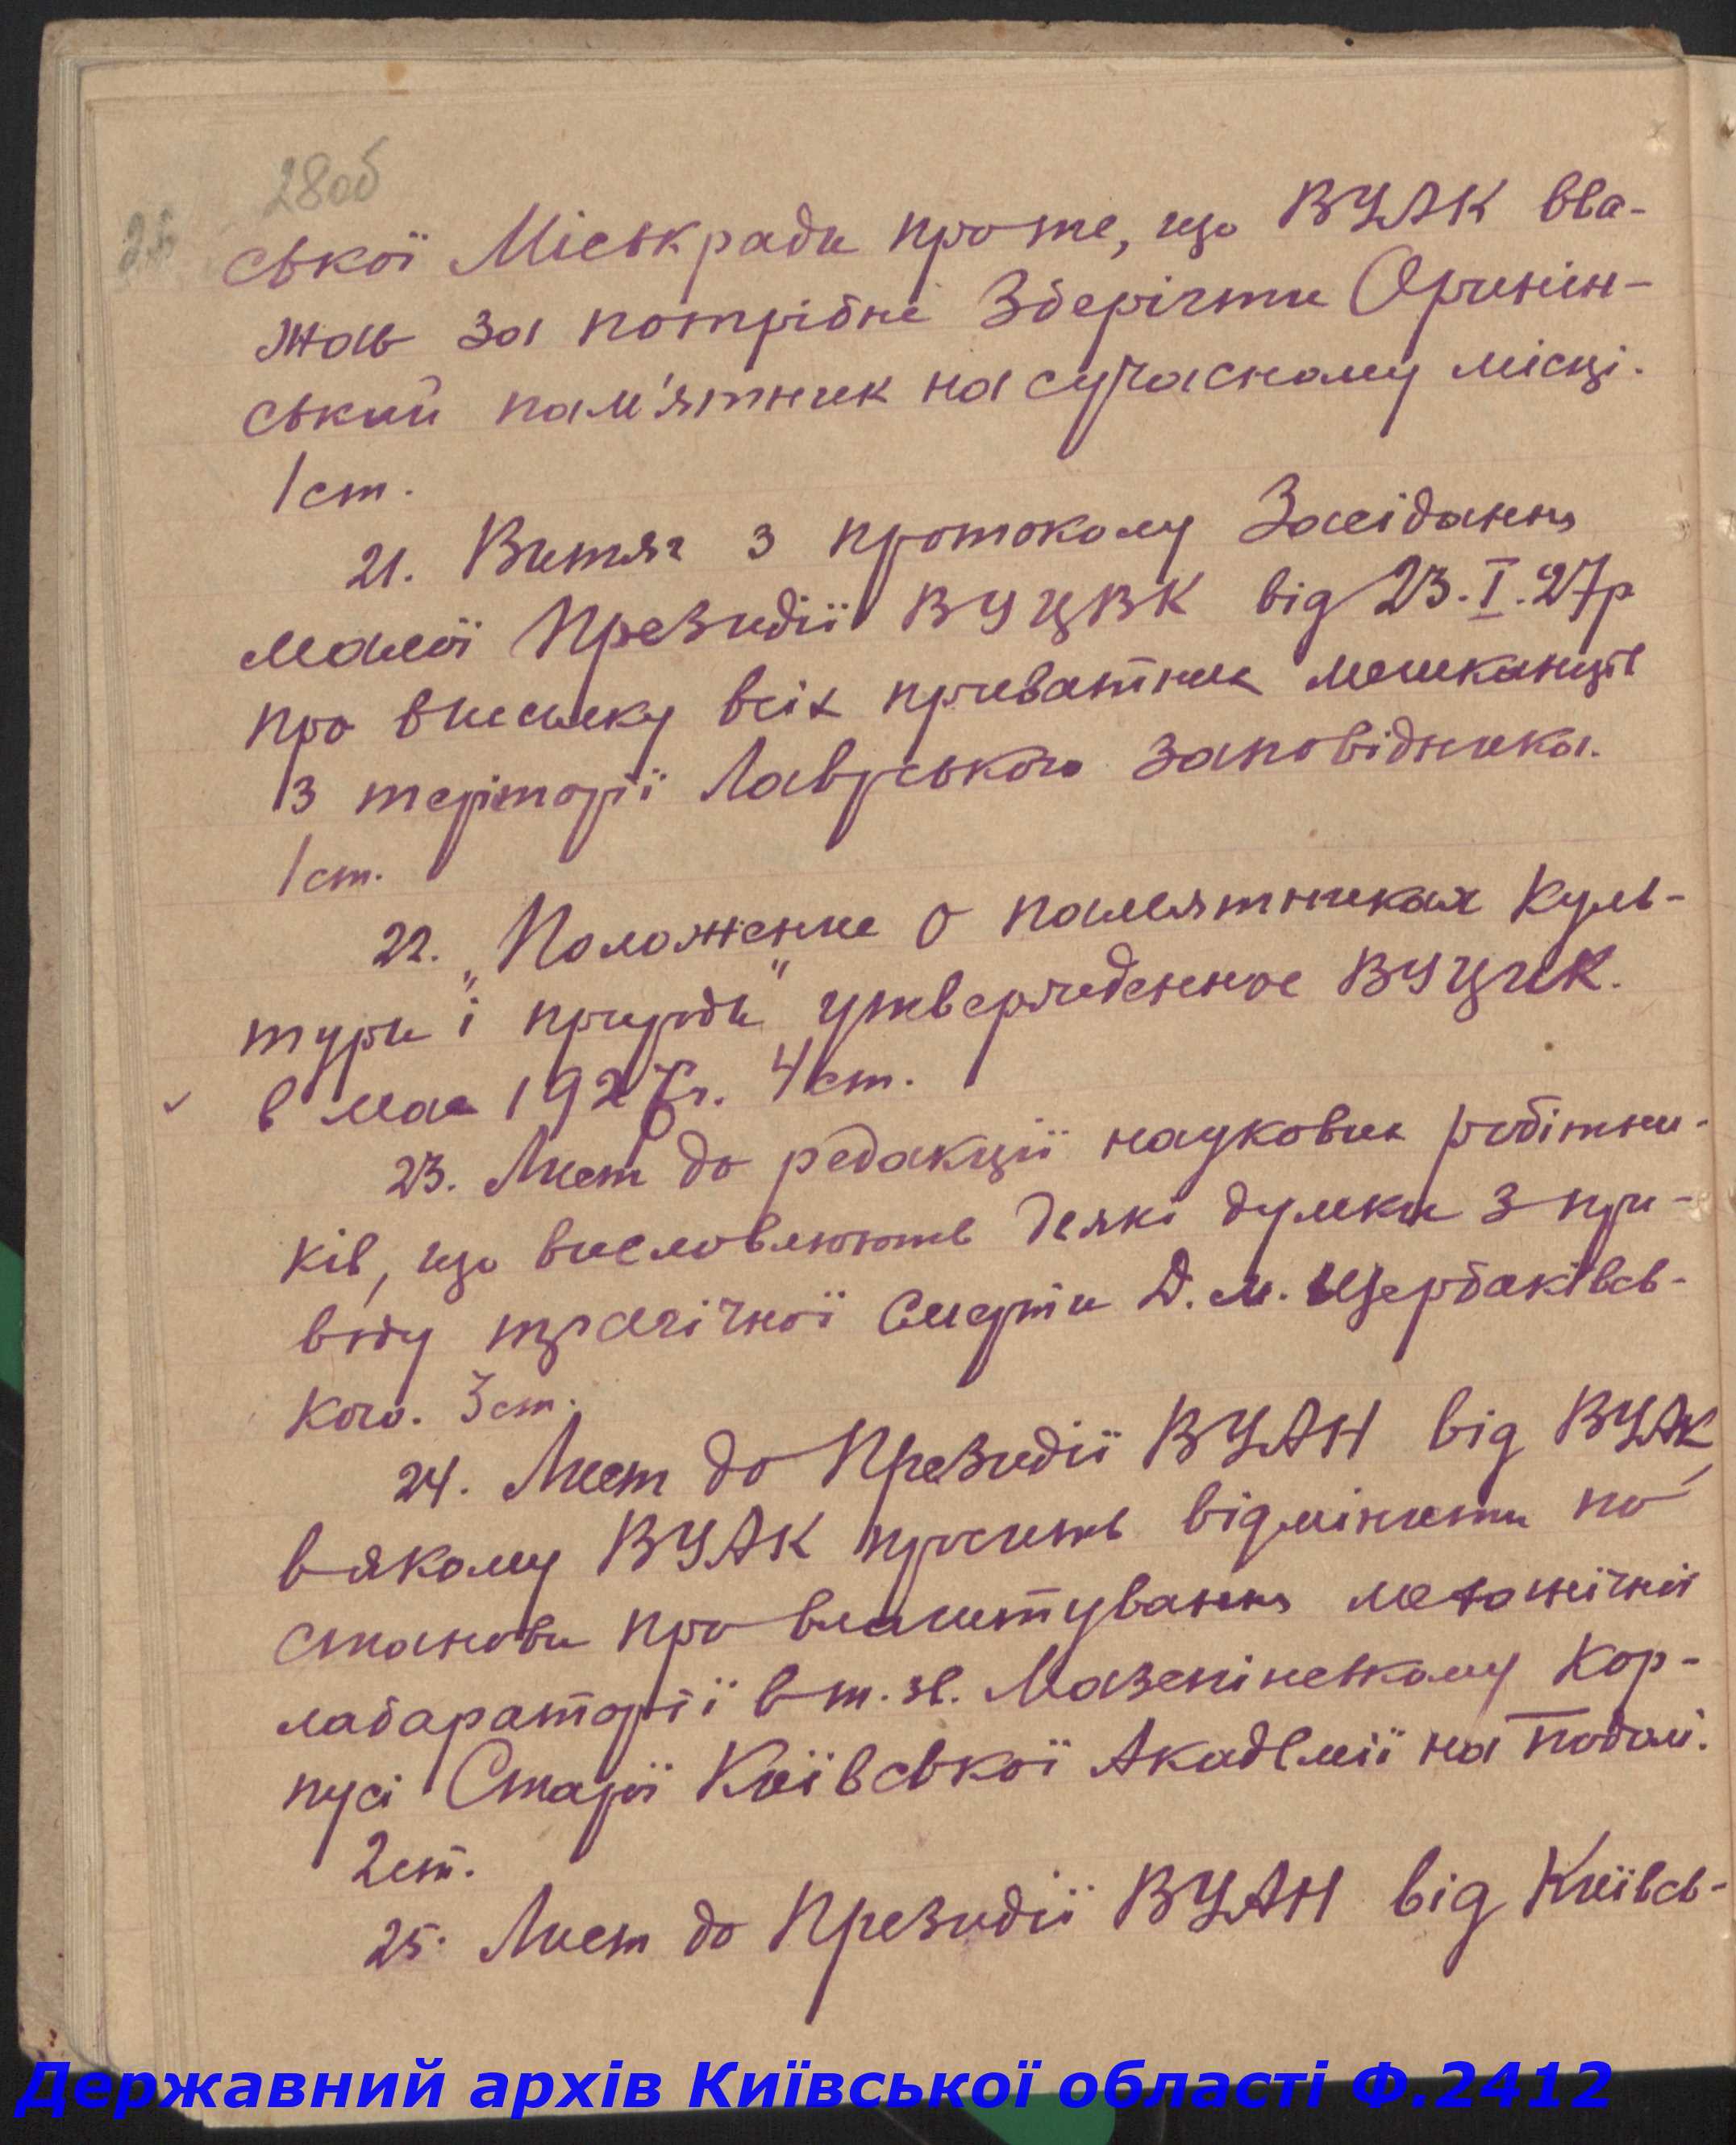 28об
ської Міськради про те, що ВУАК вва-
жав за потрібне зберігти Оринін-
ський пам'ятник на сучасному місці.
1 ст.
21. Витяг з протокому Засідання
малої Президії ВУЦВК від 23.I.27р
про висилку всіх приватних мешканців
з теріторії Лаврського заповідника.
1 ст.
22. „Положение о памятниках куль-
тури і природи" утвержденное ВУЦИК.
в мае 1927 г. 4 ст.
23. Лист до редакції наукових робітни-
ків, що висловлюють деякі думки з при-
воду трагічної смерти Д. М. Щербаківсь-
кого. 3 ст.
24. Лист до Президії ВУАН від ВУАК,
в якому ВУАК просить відмінити по
станови про влаштування механічної
лабараторії в т. зв. Мазепінському кор-
пусі Старої Київської Академії на Подолі.
2 ст.
25. Лист до Президії ВУАН від Київсь-
Державний архів Київської області Ф.2412